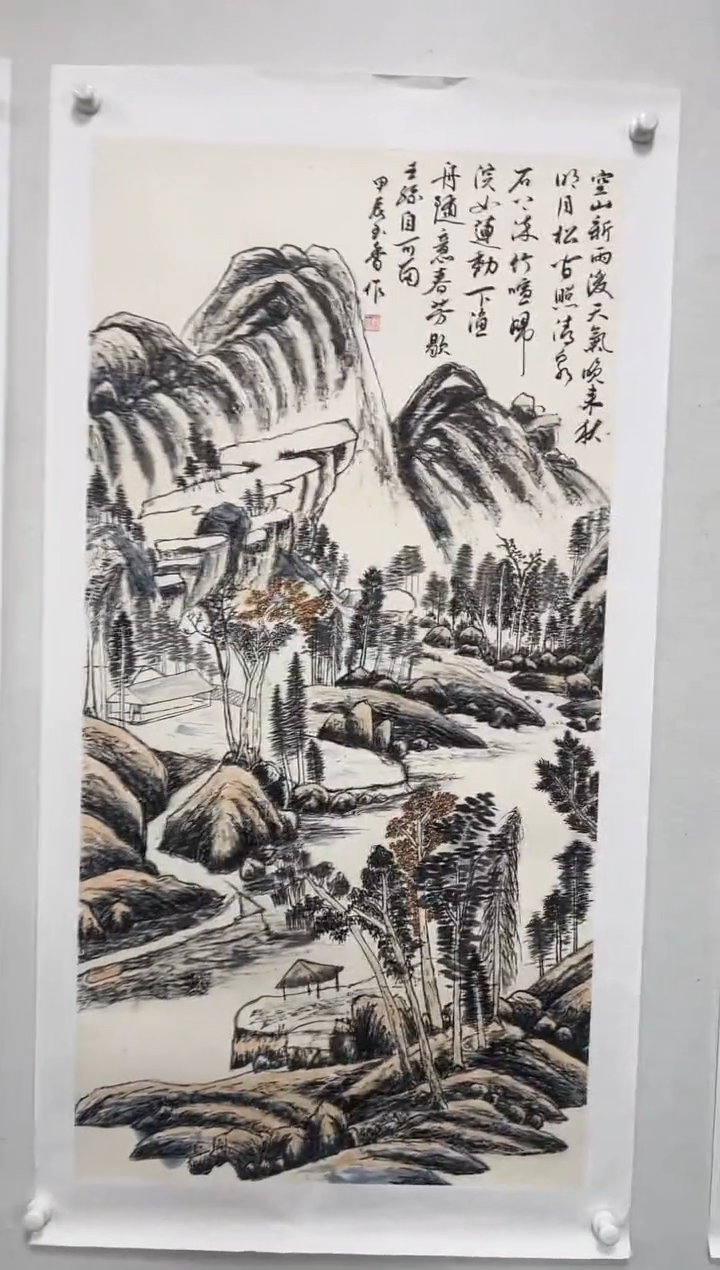 空山新雨後天氣晚来秋
明月松間照清泉
石上流竹喧歸
浣女蓮動下漁
舟隨意春芳歇
王孫自可留
甲辰玉香作